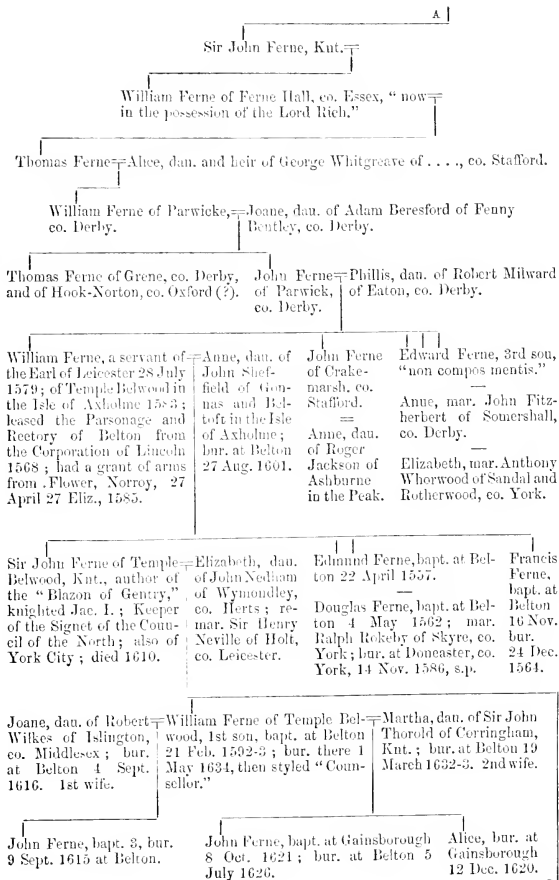 A
Sir John Ferne, Knt.
William Ferne of Ferne Hall, co. Essex, “ now
in the possession of the Lord Rich.”
Thomas Ferne
Alice, dau. and heir of George Whitgreave of . . . ., co. Stafford.
William Ferne of Parwicke,
co. Derby.
Joane, dau. of Adam Beresford of Fenny
Bentley, co. Derby.
Thomas Ferne of Grene, co. Derby,
and of Hook-Norton, co. Oxford (?).
John Ferne
of Parwick,
co. Derby.
Phillis, dau. of Robert Milward
of Eaton, co. Derby.
William Ferne, a servant of
the Earl of Leicester 28 July
1579 ; of Temple Belwood in
the Isle of Axholme 1583 ;
leased the Parsonage and
Rectory of Belton from
the Corporation of Lincoln
1568 ; had a grant of arms
from Flower, Norroy, 27
April 27 Eliz., 1585.
Anne, dau. of
John Shef-
field of Gon-
nas and Bel-
toft in the Isle
of Axholme ;
bur. at Belton
27 Aug. 1601.
John Ferne
of Crake-
marsh, co.
Stafford.
=
Anne, dau.
of Roger
Jackson of
Ashburne
in the Peak.
Edward Ferne, 3rd son,
“non compos mentis.”
—
Anne, mar. John Fitz-
herbert of Somershall,
co. Derby.
—
Elizabeth, mar. Anthony
Whorwood of Sandal and
Rotherwood, co. York.
Sir John Ferne of Temple
Belwood, Knt., author of
the “ Blazon of Gentry,”
knighted Jac. I. ; Keeper
of the Signet of the Coun-
cil of the North ; also of
York City ; died 1610.
Elizabeth, dau.
of John Nedham
of Wymondley,
co. Herts ; re-
mar. Sir Henry
Neville of Holt,
co. Leicester.
Edmund Ferne, bapt. at Bel-
ton 22 April 1557.
—
Douglas Ferne, bapt. at Bel-
ton 4 May 1562 ; mar.
Ralph Rokeby of Skyre, co.
York ; bur. at Doncaster, co.
York, 14 Nov. 1586, s.p.
Francis
Ferne,
bapt. at
Belton
16 Nov.
bur.
24 Dec.
1564.
Joane, dau. of Robert
Wilkes of Islington,
co. Middlesex ; bur.
at Belton 4 Sept.
1616. 1st wife.
William Ferne of Temple Bel-
wood, 1st son, bapt. at Belton
21 Feb. 1592-3 ; bur. there 1
May 1634, then styled “ Coun-
sellor.”
Martha, dau. of Sir John
Thorold of Corringham,
Knt. ; bur. at Belton 19
March 1632-3. 2nd wife.
John Ferne, bapt. 3, bur.
9 Sept. 1615 at Belton.
John Ferne, bapt. at Gainsborough
8 Oct. 1621 ; bur. at Belton 5
July 1626.
Alice, bur. at
Gainsborough
12 Dec. 1620.